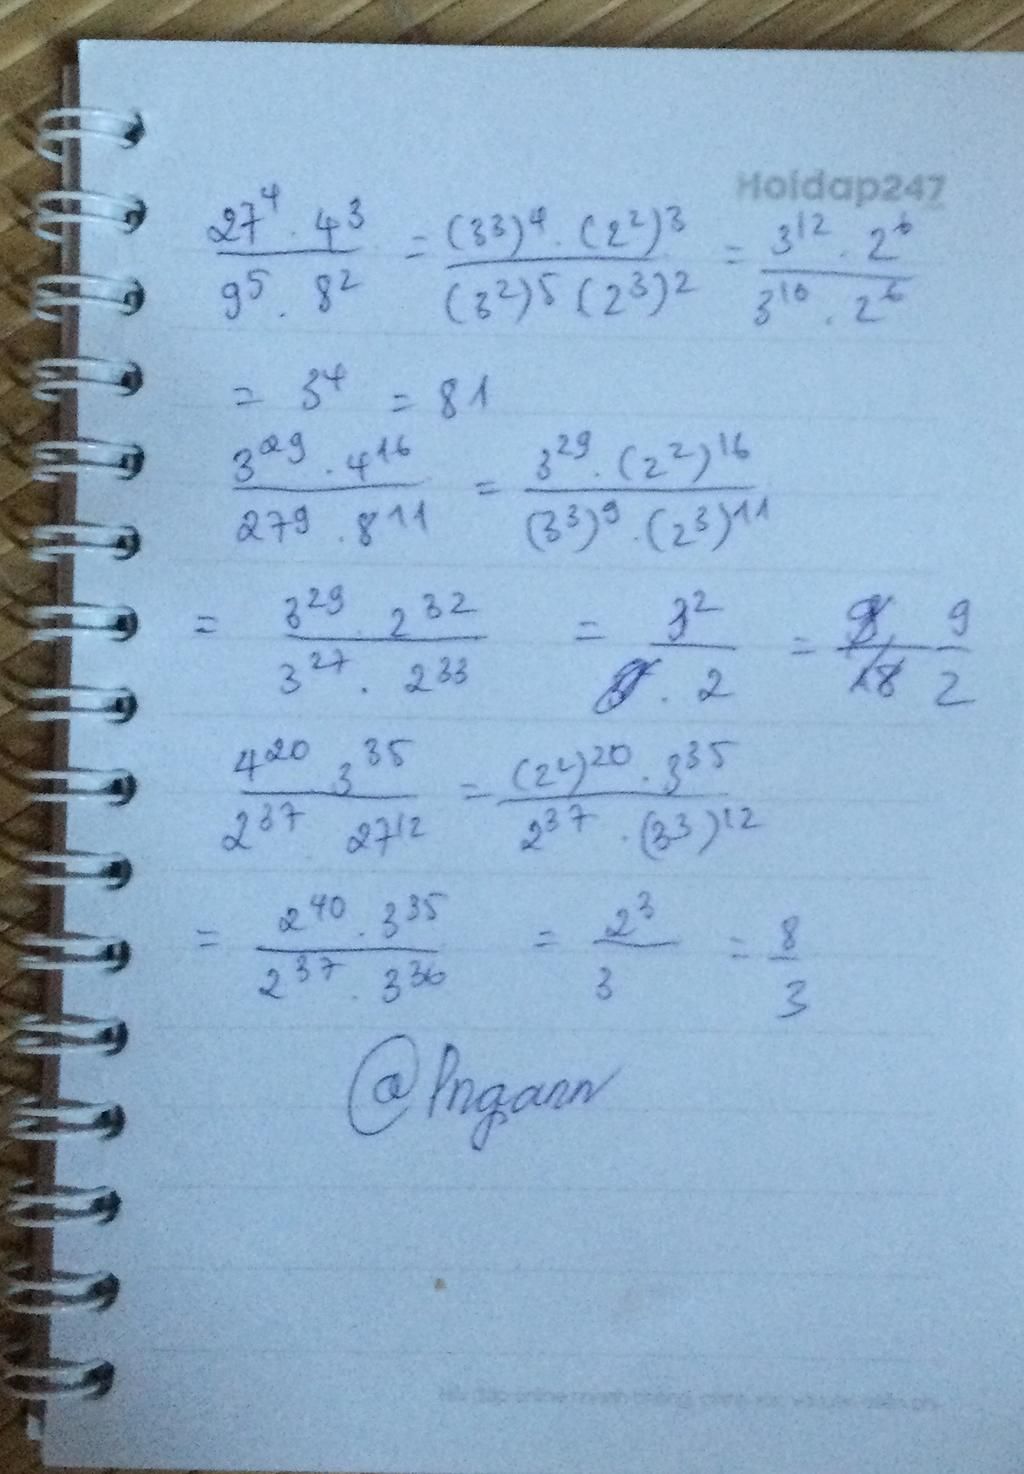 Hoidap247
27⁴ . 4³ / 9⁵ . 8² = (3³)⁴ . (2²)³ / (3²)⁵ (2³)² = 3¹² . 2⁶ / 3¹⁰ . 2⁶
= 3⁴ = 81
3²⁹ . 4¹⁶ / 27⁹ . 8¹¹ = 3²⁹ . (2²)¹⁶ / (3³)⁹ . (2³)¹¹
= 3²⁹ . 2³² / 3²⁷ . 2³³ = 3² / . 2 = 9 / 2
4²⁰ . 3³⁵ / 2³⁷ . 27¹² = (2²)²⁰ . 3³⁵ / 2³⁷ . (3³)¹²
= 2⁴⁰ . 3³⁵ / 2³⁷ . 3³⁶ = 2³ / 3 = 8 / 3
@Pngann